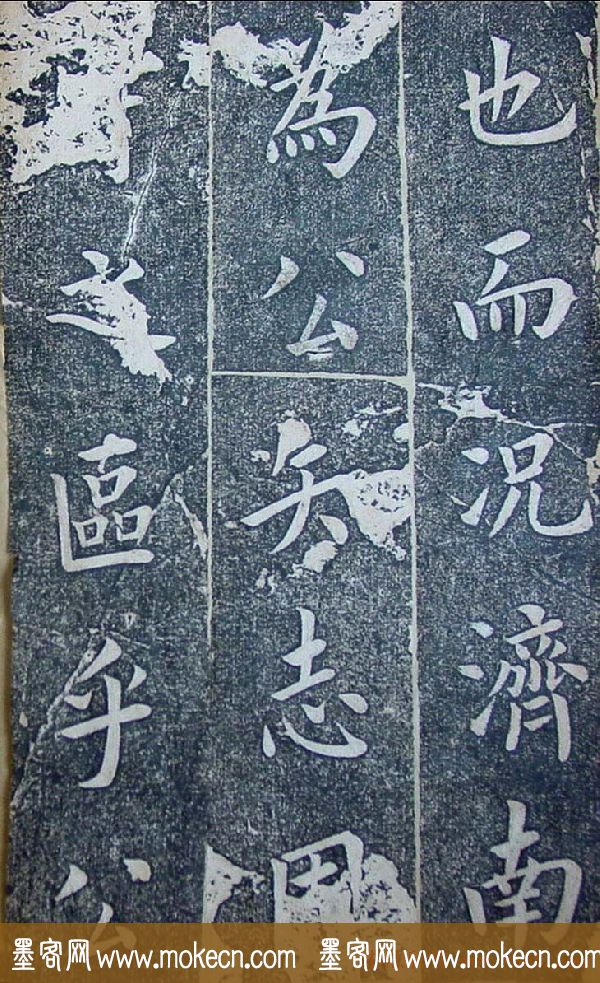 也而況濟南
為公矢志
區乎公
墨客网 www.mokecn.com 墨客网 www.mokecn.com